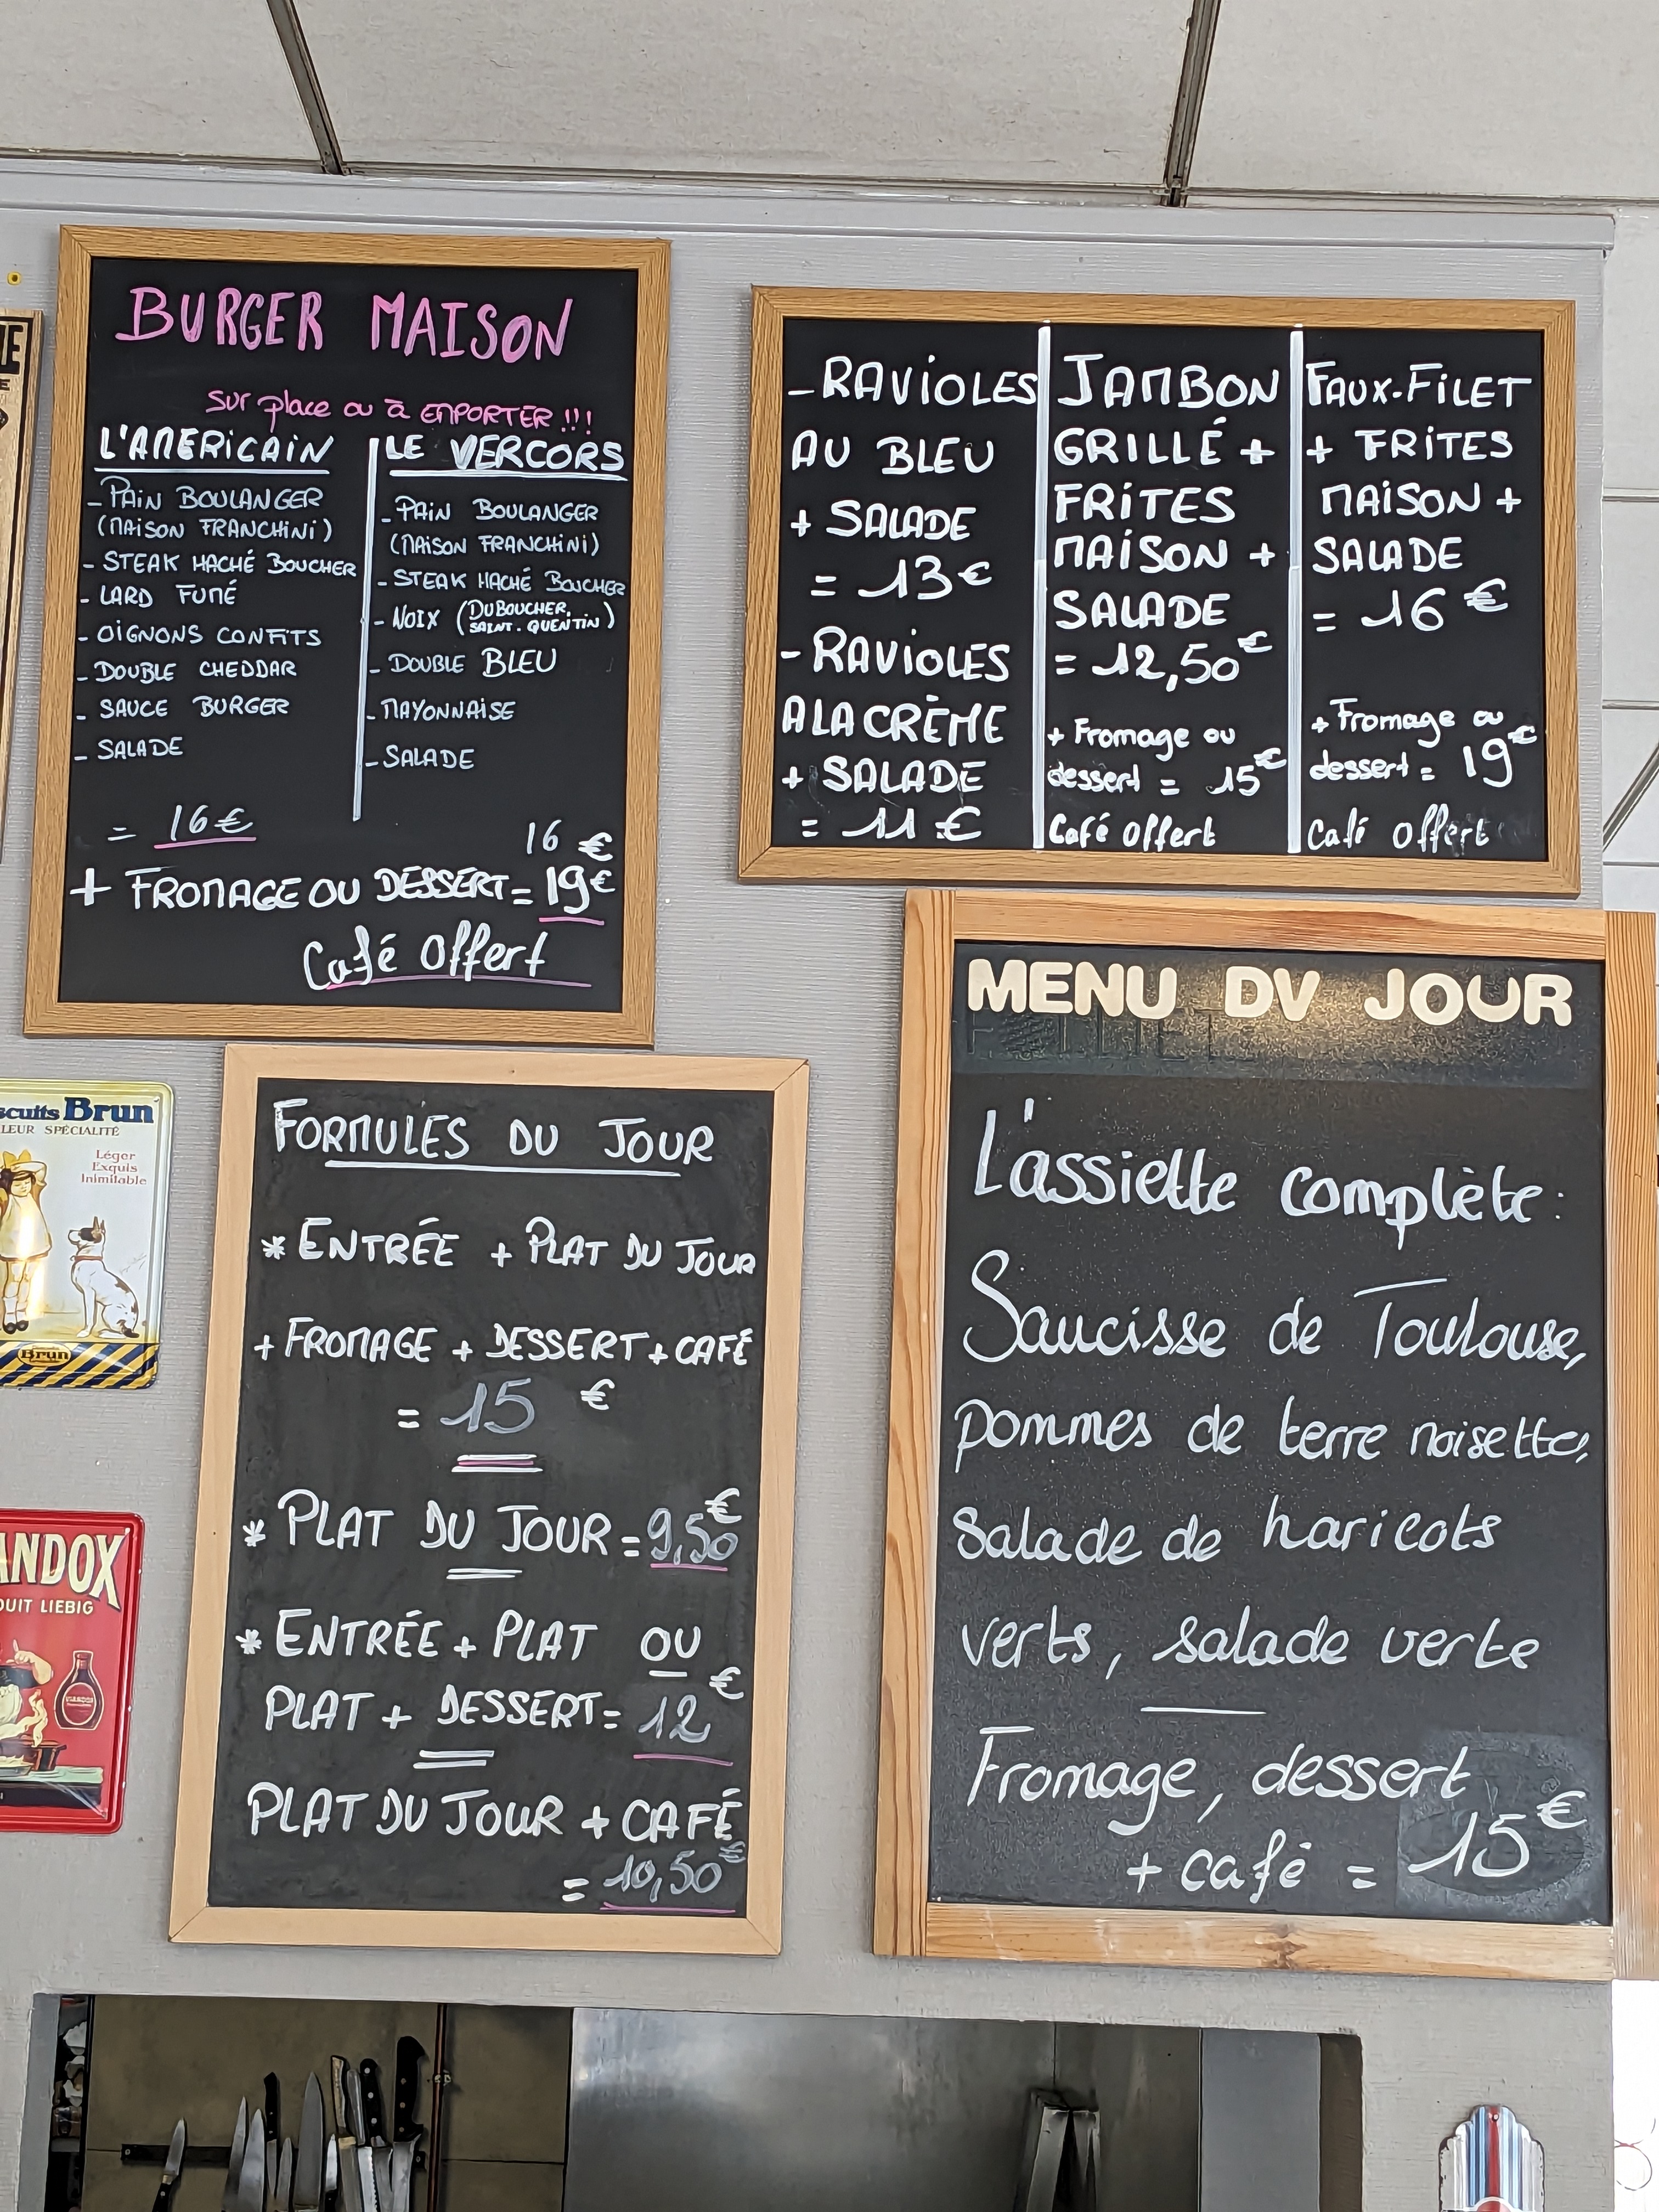 BURGER MAISON
Sur place ou à EMPORTER !!!
L'AMERICAIN
- PAIN BOULANGER
(MAISON FRANCHINI)
- STEAK HACHÉ BOUCHER
- LARD FUMÉ
- OIGNONS CONFITS
- DOUBLE CHEDDAR
- SAUCE BURGER
- SALADE
= 16€
LE VERCORS
- PAIN BOULANGER
(MAISON FRANCHINI)
- STEAK HACHÉ BOUCHER
- NOIX (DU BOUCHER,
SAINT-QUENTIN)
- DOUBLE BLEU
- MAYONNAISE
- SALADE
16 €
+ FROMAGE OU DESSERT = 19€
Café Offert
- RAVIOLES
AU BLEU
+ SALADE
= 13€
- RAVIOLES
A LA CRÈME
+ SALADE
= 11 €
JAMBON
GRILLÉ +
FRITES
MAISON +
SALADE
= 12,50€
+ Fromage ou
dessert = 15€
Café Offert
FAUX-FILET
+ FRITES
MAISON +
SALADE
= 16 €
+ Fromage ou
dessert = 19€
Café Offert
FORMULES DU JOUR
* ENTRÉE + PLAT DU JOUR
+ FROMAGE + DESSERT + CAFÉ
= 15 €
* PLAT DU JOUR = 9,50€
* ENTRÉE + PLAT OU
PLAT + DESSERT = 12€
PLAT DU JOUR + CAFÉ
= 10,50€
MENU DV JOUR
L'assiette complète :
Saucisse de Toulouse,
pommes de terre noisettes,
salade de haricots
verts, salade verte
Fromage, dessert
+ café = 15€
scuits Brun
LEUR SPÉCIALITÉ
Léger
Exquis
Inimitable
Brun
ANDOX
DUIT LIEBIG